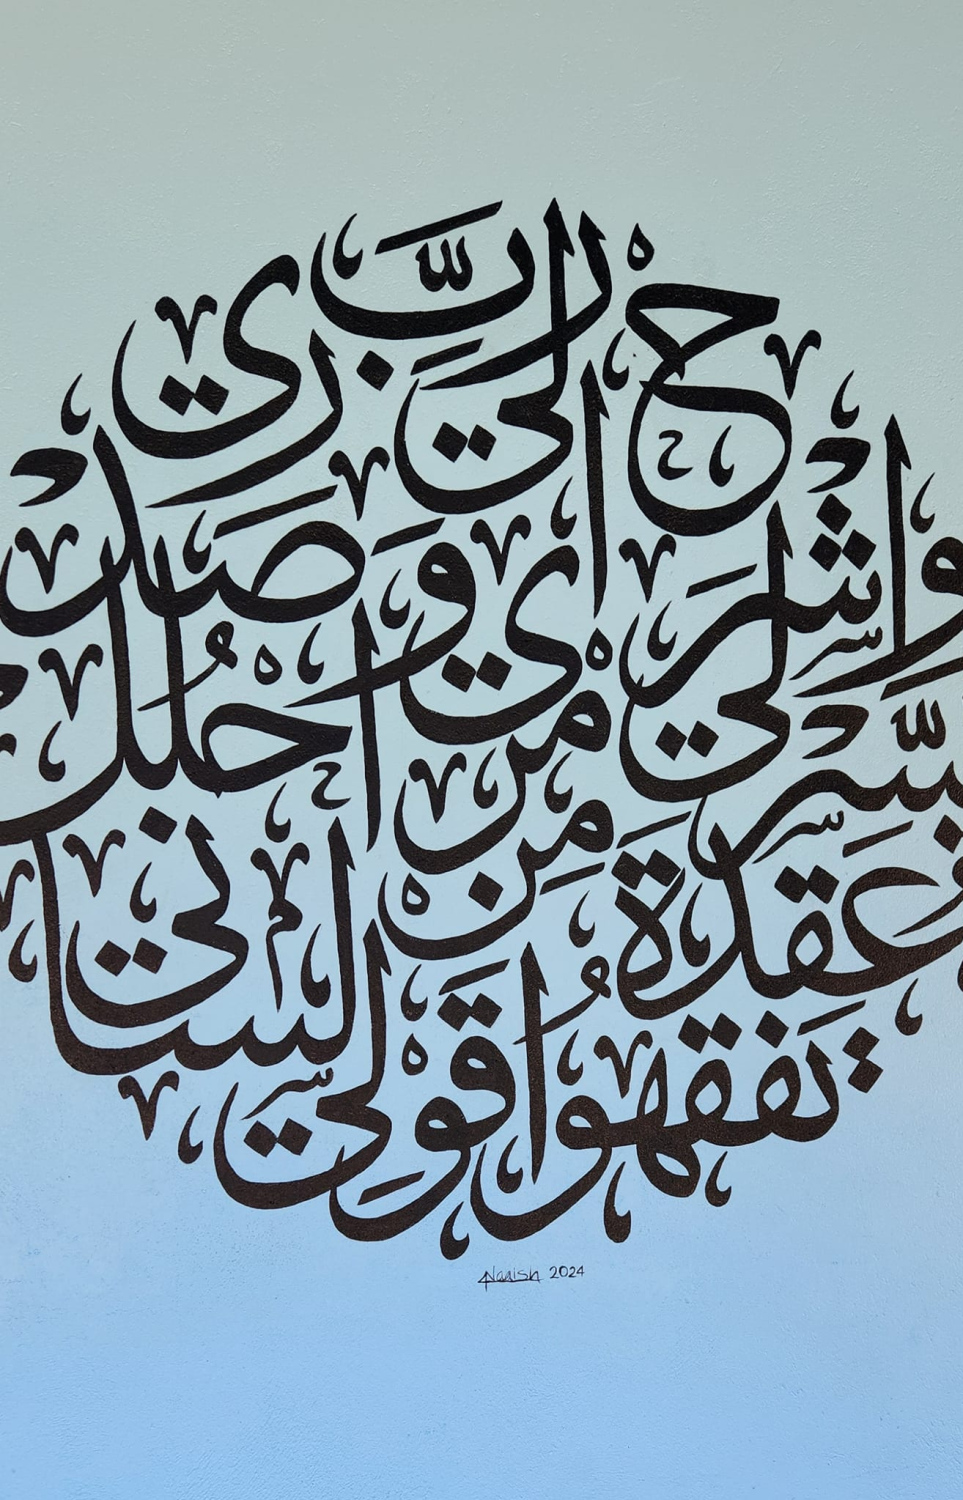 رب اشرح لي صدري
ويسر لي امري
واحلل عقدة من لساني
يفقهوا قولي
2024